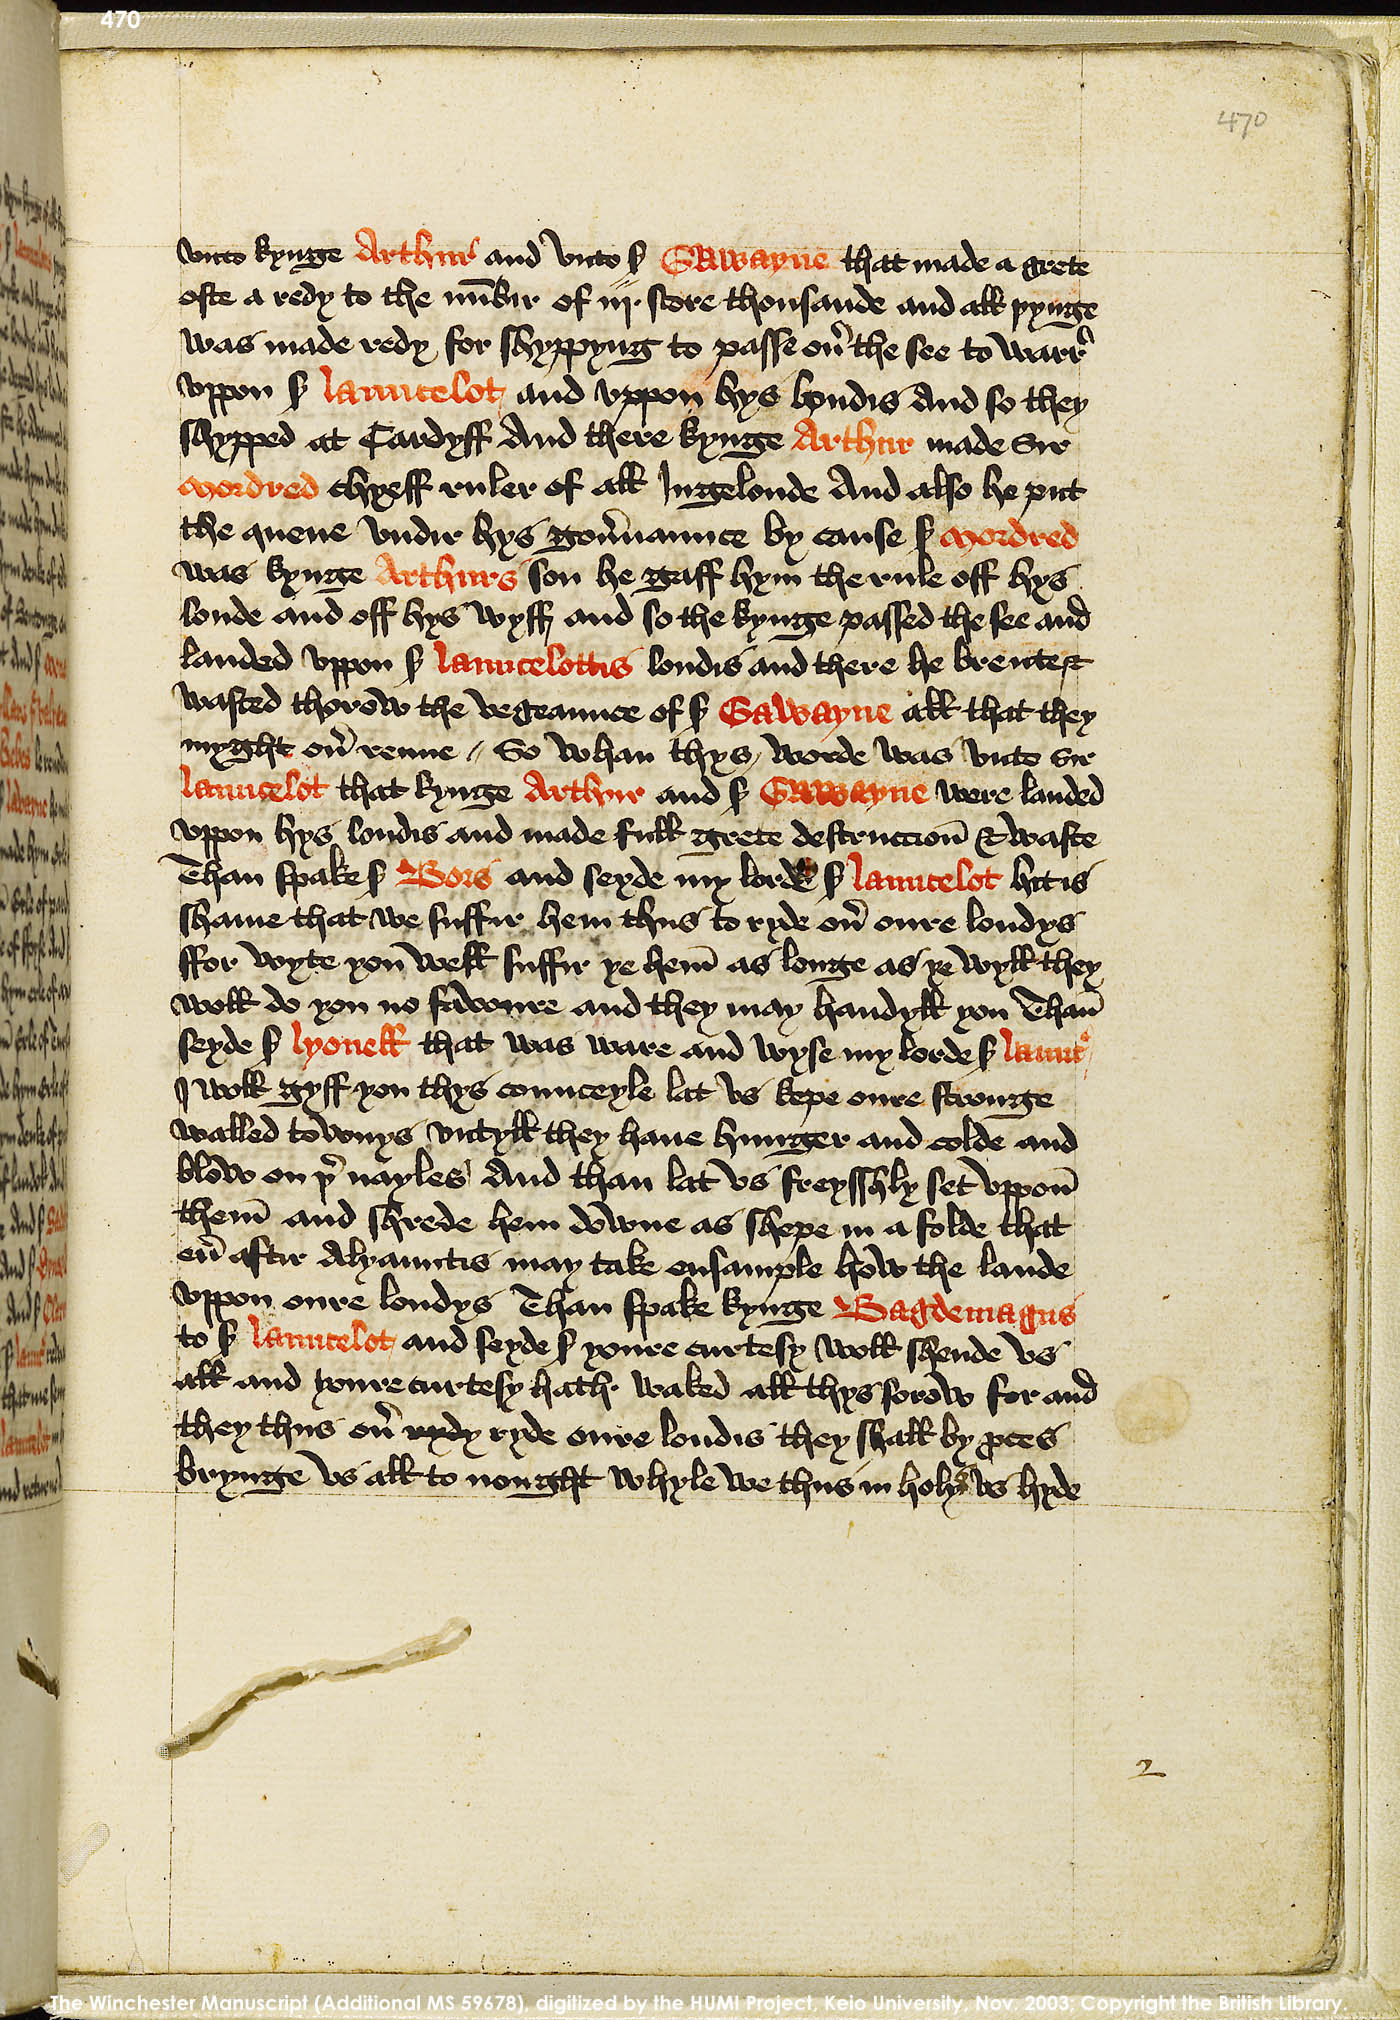 470
470
vnto kynge Arthur and vnto ẜ Gawayne that made a grete
oste a redy to the nūbir of iij score thousande and all þynge
was made redy for shyppyng to passe ou̾ the see to warr̾
vppon ẜ launcelot and vppon hys londis And so they
shypped at Cardyff And there kynge Arthur made Sir
Mordred chyeff ruler of all Ingelonde And also he put
the quene vndir hys gou̾naunce by cause ẜ Mordred
was kynge Arthurs son he gaff hym the rule off hys
londe and off hys wyff and so the kynge passed the see and
landed vppon ẜ launcelottis londis and there he brente &
wasted thorow the vegeaunce of ẜ Gawayne all that they
myght ou̾ renne // So whan thys worde was vnto Sir
launcelot that kynge Arthur and ẜ Gawayne were landed
vppon hys londis and made full grete destruccion̄ & waste
Than spake ẜ Bors and seyde my lorde ẜ launcelot hit is
shame that we suffir hem thus to ryde ou̾ oure londys
ffor wyte you̾ well suffir ye hem̄ as longe as ye wyll they
woll do you no favoure and they may handyll you Than̄
seyde ẜ lyonell that was ware and wyse my lorde ẜ launc̾
I woll gyff you thys counceyle lat vs kepe oure stronge
walled townys vntyll they haue hunger and colde and
blow on þ̾ nayles And than lat vs freysshly set vppon̄
them̄ and shrede hem downe as shepe in a folde that
eu̾ aftir alyauntis may take ensample how the lande
vppon oure londys Than spake kynge Bagdemagus
to ẜ launcelot and seyde ẜ youre curtesy woll shende vs
all and youre curtesy hath waked all thys sorow for and
they thus ou̾ ryde oure londis they shall by ꝓces
brynge vs all to nought whyle we thus in holys vs hyde
2
The Winchester Manuscript (Additional MS 59678), digitized by the HUMI Project, Keio University, Nov. 2003; Copyright the British Library.